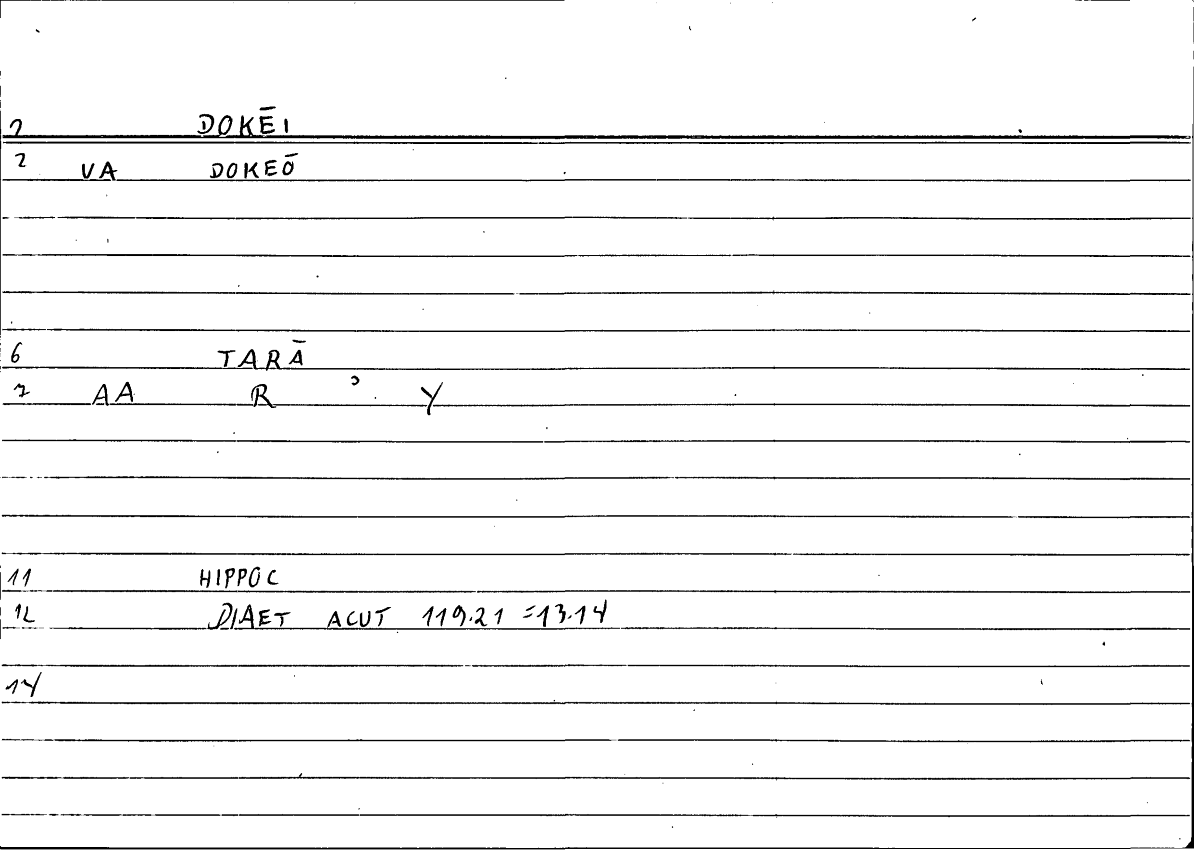 2 DOKĒI
2 VA DOKEŌ
6 TARĀ
7 AA R ʾ Y
11 HIPPOC
12 DIAET ACUT 119.21 =13.14
14